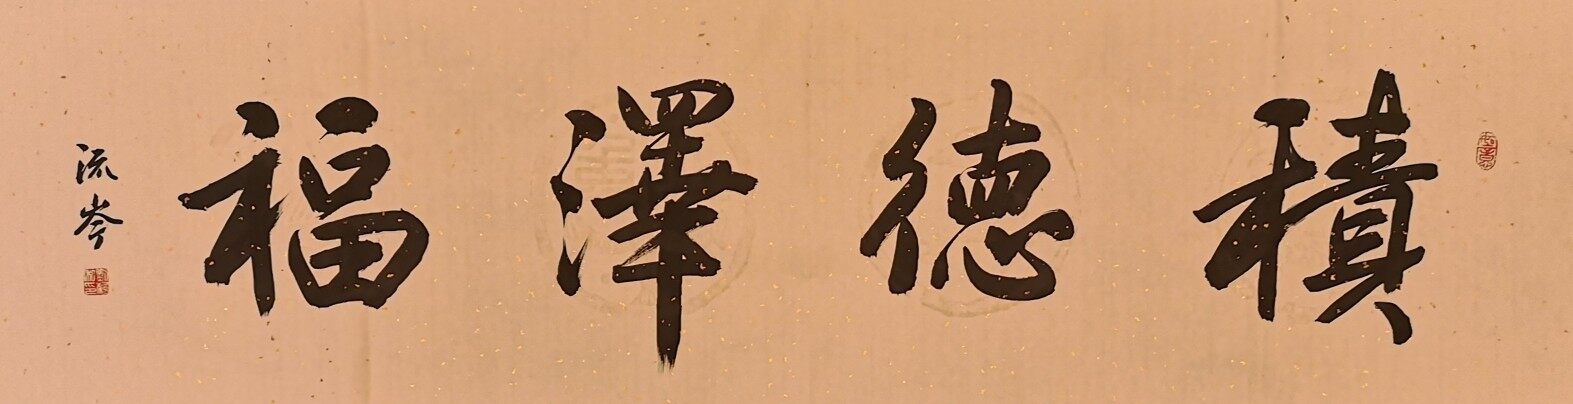 積德澤福
流岑